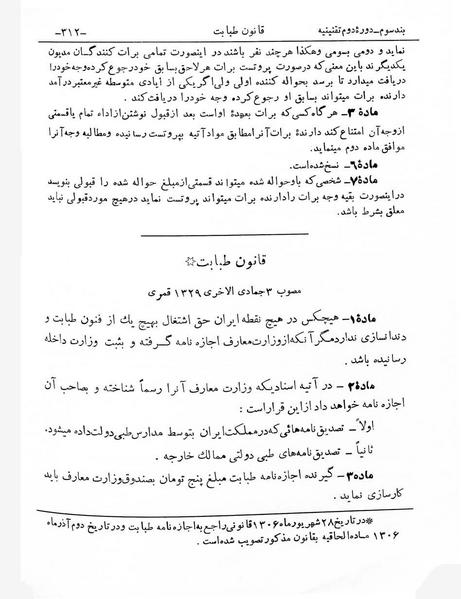 بندسوم_دورهٔ دوم تقنینیه قانون طبابت _۳۱۲_
نماید و دومی بسومی وهکذا هرچند نفر باشند در اینصورت تمامی برات کنندگان مدیون
یکدیگرند باین معنی که درصورت پروتست برات هرلاحق بسابق خودرجوع کرده وجه خودرا
دریافت میدارد تا برسد بحواله کننده اولی ولی اگر یکی از ایادی متوسطه غیرمعتبر درآمد
دارنده برات میتواند بسابق او رجوع کرده وجه خودرا دریافت کند.
مادهٔ ۳_ هرگاه کسی که برات بعهدهٔ اواست بعد ازقبول نوشتن ازاداء تمام یاقسمتی
ازوجه آن امتناع کند دارندهٔ برات آنرا مطابق مواد آتیه بپروتست رسانیده ومطالبه وجه آنرا
موافق ماده دوم مینماید.
مادهٔ ۶_ نسخ شده است.
مادهٔ ۷_ شخصی که باوحواله شده میتواند قسمتی ازمبلغ حواله شده را قبولی بنویسد
دراینصورت بقیه وجه برات رادارنده برات میتواند پروتست نماید درهیچ موردقبولی نباید
معلق بشرط باشد.
قانون طبابت☆
مصوب ۳ جمادی الاخری ۱۳۲۹ قمری
مادهٔ ۱_ هیچکس در هیچ نقطه ایران حق اشتغال بهیچ یك از فنون طبابت و
دندانسازی ندارد مگر آنکه از وزارت معارف اجازه نامه گرفته و بثبت وزارت داخله
رسانیده باشد .
مادهٔ ۲_ در آتیه اسنادیکه وزارت معارف آنرا رسماً شناخته و بصاحب آن
اجازه نامه خواهد داد ازاین قراراست :
اولاً_ تصدیق نامه هائی که درمملکت ایران بتوسط مدارس طبی دولت داده میشود.
ثانیاً_ تصدیق نامه‌های طبی دولتی ممالک خارجه .
مادهٔ ۳_ گیرنده اجازه نامه طبابت مبلغ پنج تومان بصندوق وزارت معارف باید
کارسازی نماید .
*درتاریخ ۲۸ شهریورماه ۱۳۰۶ قانونی راجع به اجازه نامه طبابت ودرتاریخ دوم آذرماه
۱۳۰۶ ماده الحاقیه بقانون مذکور تصویب شده است .